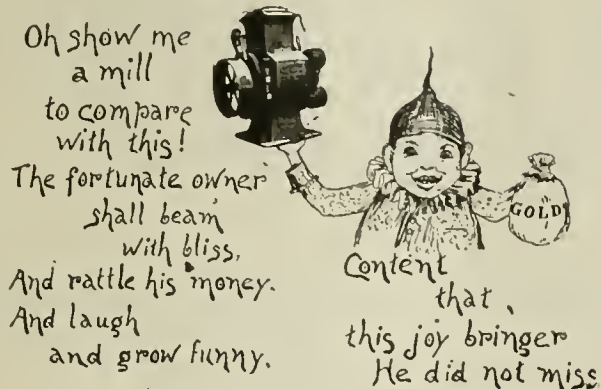 Oh show me
a mill
to compare
with this!
The fortunate owner
shall beam
with bliss,
And rattle his money.
And laugh
and grow funny.
GOLD
Content
that,
this joy bringer
He did not miss